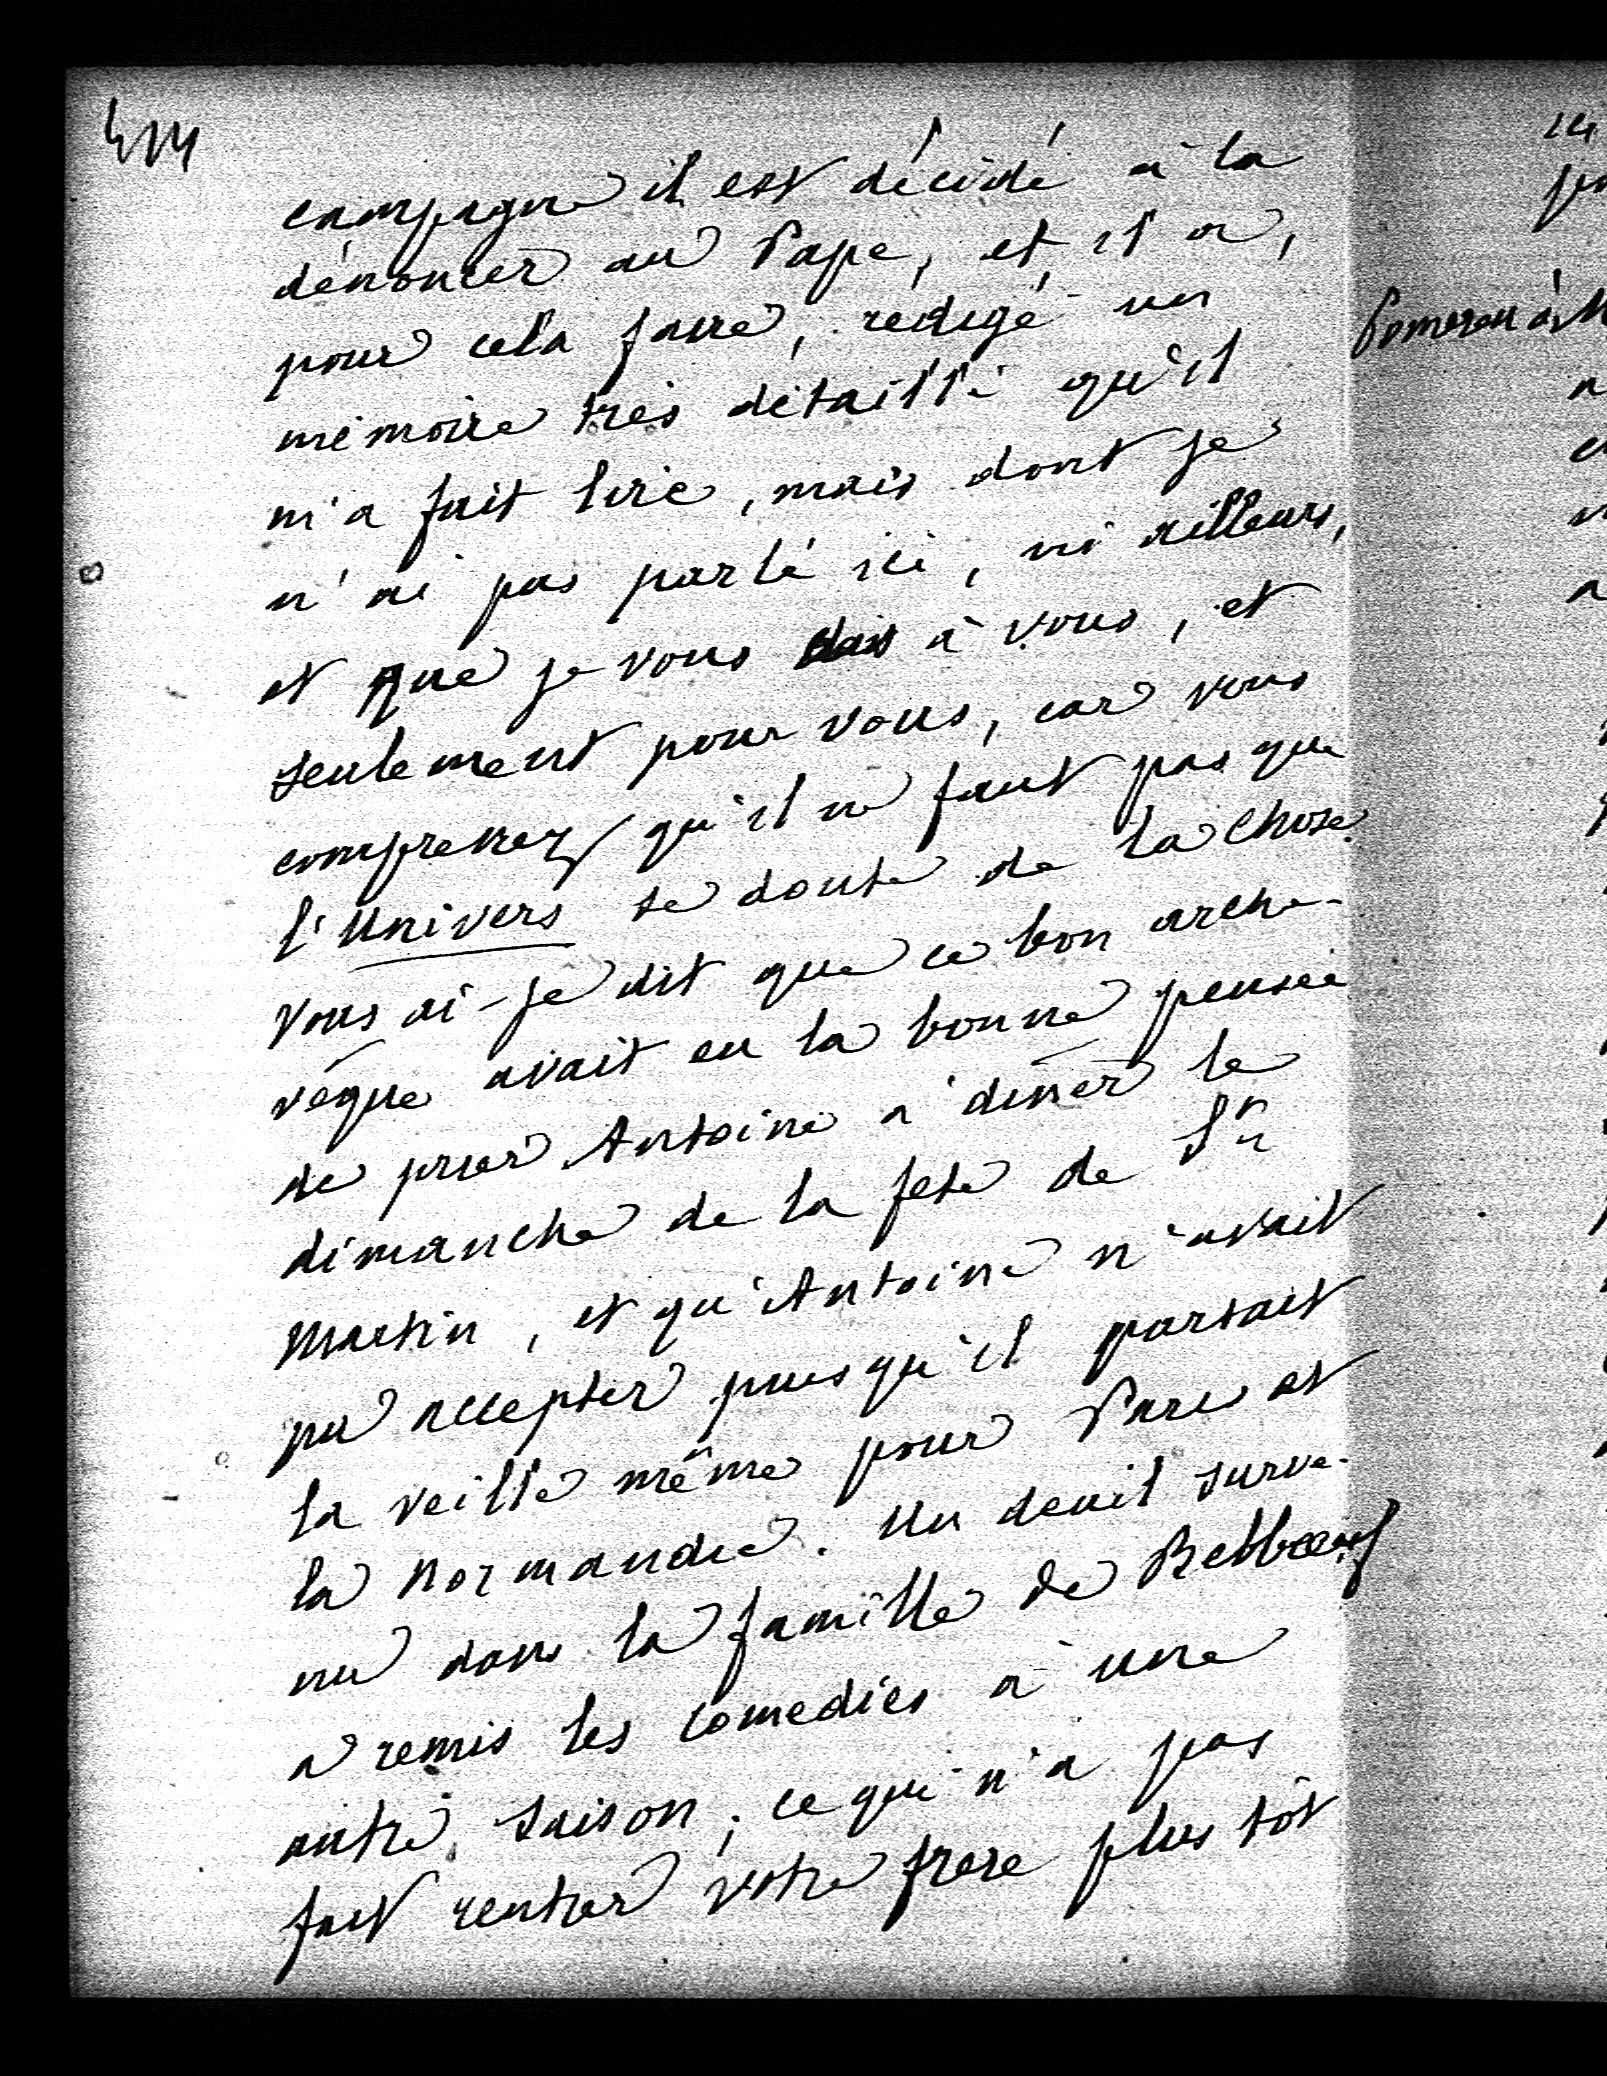 414
campagne il est décidé à la
dénoncer au Pape, et il a,
pour cela faire, rédigé un
mémoire très détaillé qu'il
m'a fait lire, mais dont je
n'ai pas parlé ici, ni ailleurs,
et que je vous dis à vous, et
seulement pour vous, car vous
comprenez qu'il ne faut pas que
l'Univers se doute de la chose.
Vous ai-je dit que ce bon arche-
vêque avait eu la bonne pensée
de prier Antoine à dîner le
dimanche de la fete de St
Martin, et qu'Antoine n'avait
pu accepter puisqu'il partait
la veille même pour Paris et
la Normandie. Un deuil surve-
nu dans la famille de Belbeuf
a remis les comedies à une
autre saison; ce qui n'a pas
fait rentrer votre frere plus tôt